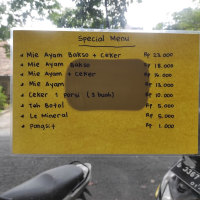 Special Menu
Mie Ayam Bakso + Ceker Rp 23.000
Mie Ayam Bakso Rp 18.000
Mie Ayam + Ceker Rp 16.000
Mie Ayam Rp 13.000
Ceker 1 Porsi (3 buah) Rp 10.000
Teh Botol Rp 5.000
Le Mineral Rp 5.000
Pangsit Rp 1.000